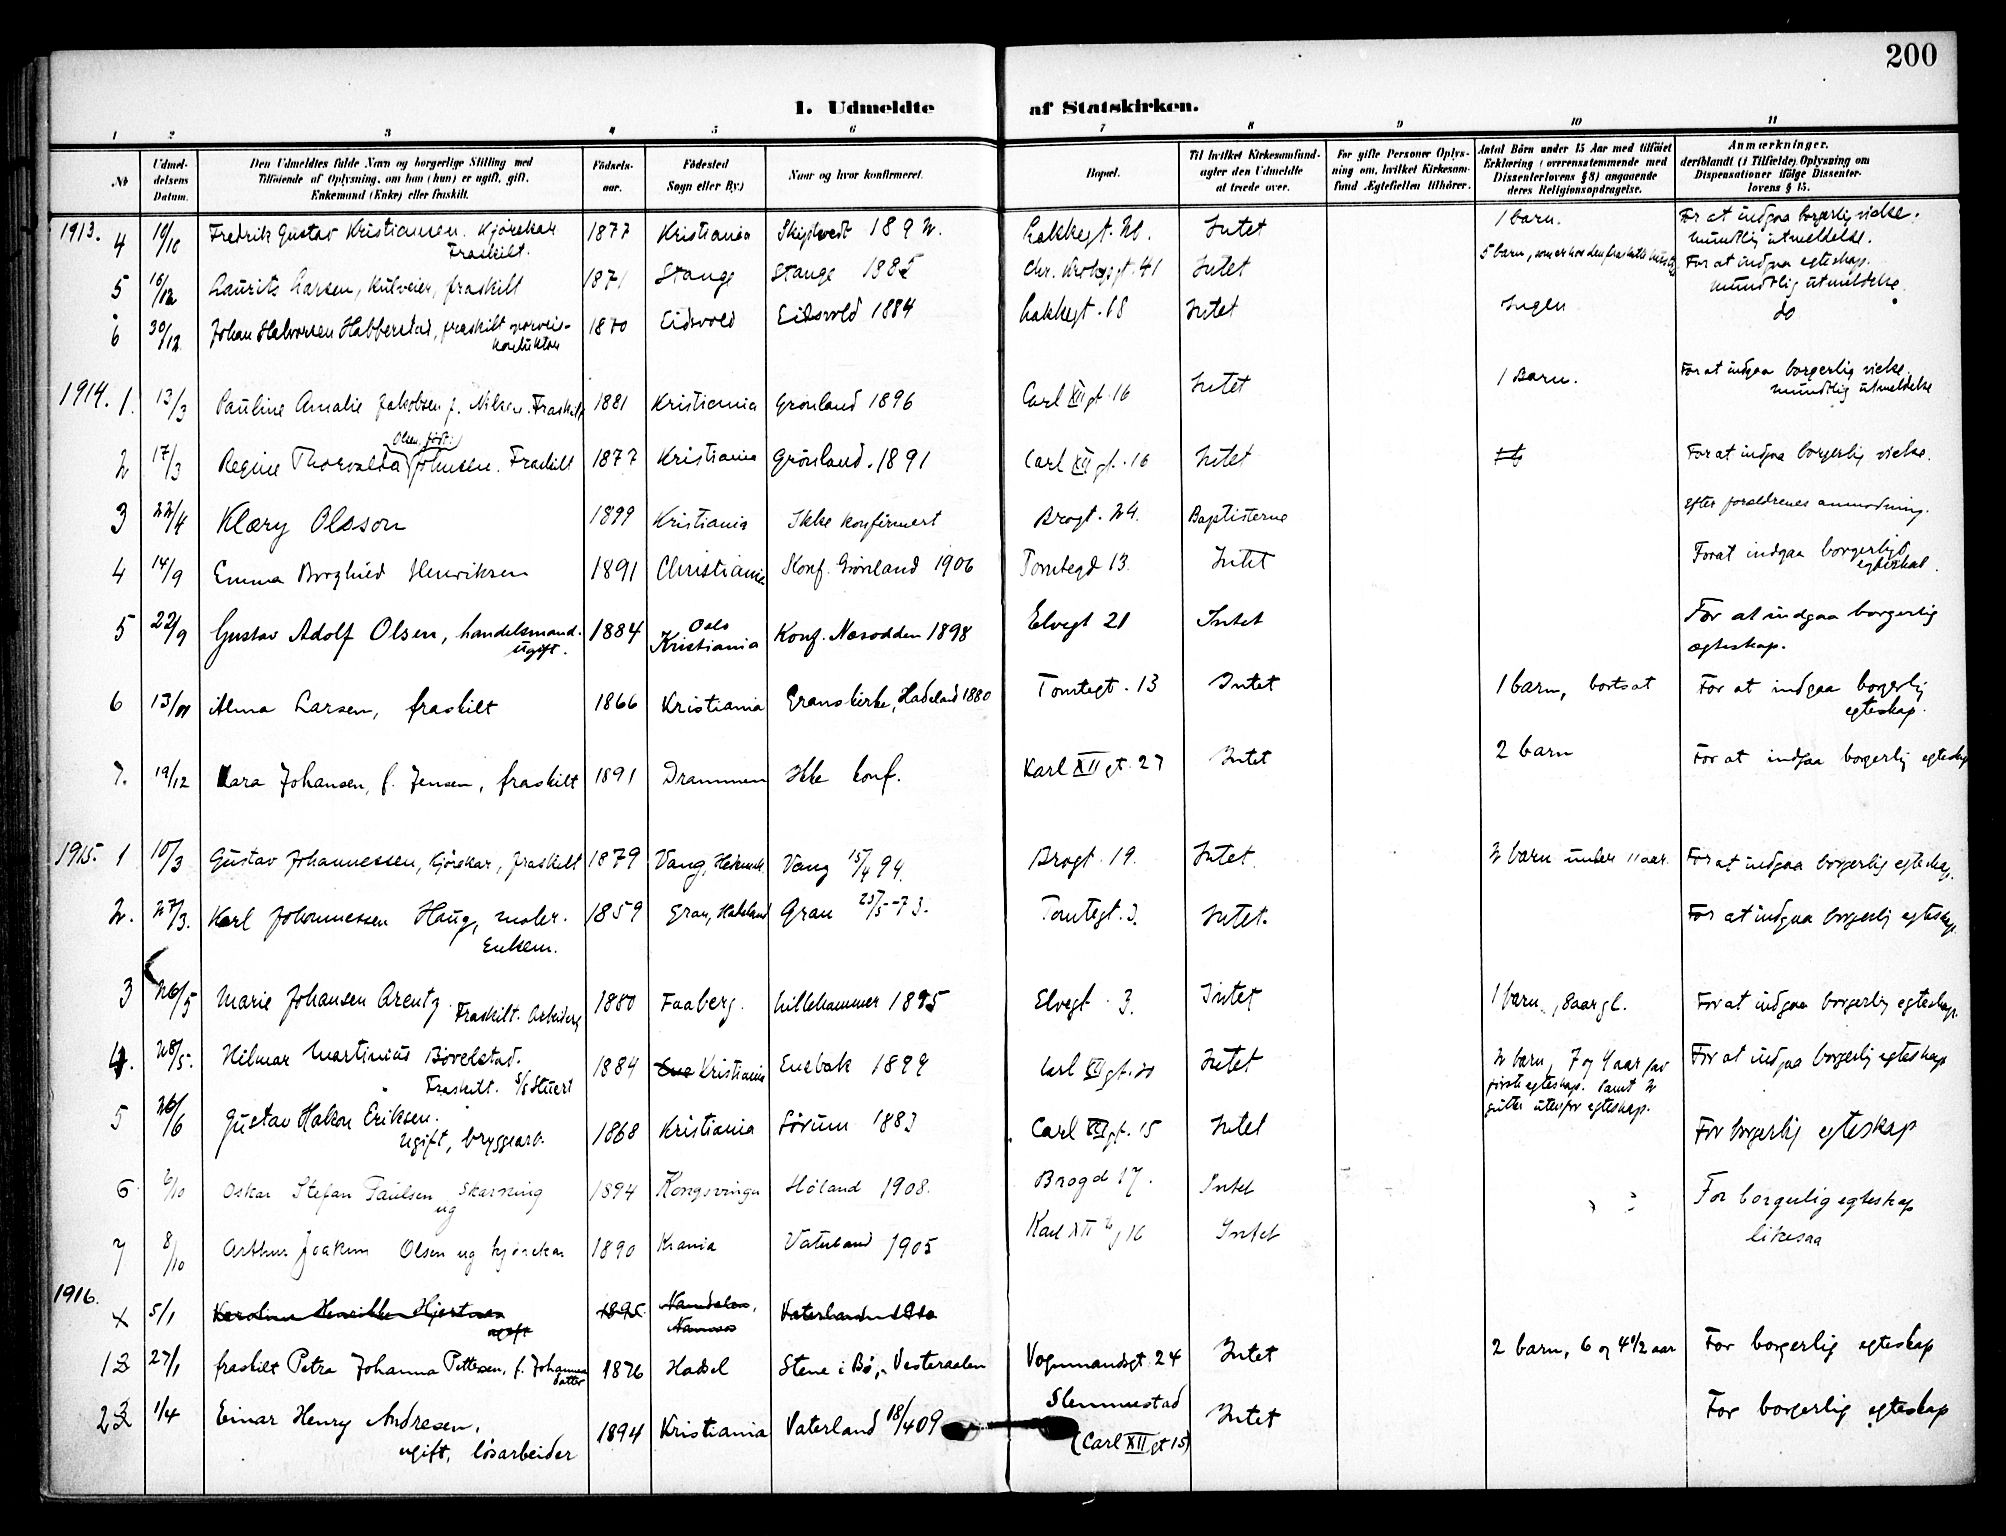 200
1. Udmeldte af Statskirken.
1 2 3 4 5 6 7 8 9 10 11
No
Udmeldelsens Datum.
Den Udmeldtes fulde Navn og borgerlige Stilling med
Tilføiende af Oplysning, om han (hun) er ugift, gift,
Enkemand (Enke) eller fraskilt.
Fødselsaar.
Fødested
Sogn eller By.)
Naar og hvor konfirmeret.
Bopæl.
Til hvilket Kirkesamfund
agter den Udmeldte
at træde over.
For gifte Personer Oplysning om, hvilket Kirkesamfund Ægtefællen tilhører.
Antal Børn under 15 Aar med tilføiet
Erklæring (overensstemmende med
Dissenterlovens § 8) angaaende
deres Religionsopdragelse.
Anmærkninger,
deriblandt (i Tilfælde) Oplysning om
Dispensationer ifølge Dissenterlovens § 15.
1913. 4 10/10 Fredrik Gustav Kristiansen. Kjørekar 1877 Kristiania 1892. Lakkegt. Intet 1 barn. For at indgaa borgerlig vielse.
Fraskilt. mundtlig utmeldelse.
5 16/12 Laurits Larsen, fraskilt 1871 Stange Stange 1885 Chr. Krohgsgt. 41 Intet 5 barn, som er hos den fraskilte For at indgaa egteskap.
mundtlig utmeldelse.
6 30/12 Johan Halvorsen fraskilt 1870 Eidsvold Eidsvold 1884 Lakkegt. 18 Intet Ingen do
1914. 1. 13/3 Pauline Amalie Jakobsen f. Nilsen. Fraskilt 1881 Kristiania Grønland 1896 Carl XII gt. 16 Intet 1 Barn. For at indgaa borgerlig vielse.
mundtlig utmeldelse
Olsen født:
2 17/3 Regine Thorvalda Johnsen. Fraskilt 1877 Kristiania Grønland. 1891 Carl XII gt. 16 Intet For at indgaa borgerlig vielse.
3 22/4 Klæry Olsson 1899 Kristiania Ikke konfirmert Brogt. 24. Baptisterne Efter forældrenes anmodning.
4 14/9 Emma Borghild Henriksen 1891 Christiania Konf. Grønland 1906 Tomtegd 13. Intet Forat indgaa borgerligt
egteskab.
5 22/9 Gustav Adolf Olsen, handelsmand. 1884 Oslo Kristiania Konf. Nesodden 1898 Elvegt 21 Intet For at indgaa borgerlig
ugift. ægteskap.
6 13/11 Alma Larsen, fraskilt 1866 Kristiania Grans kirke, Hadeland 1880 Tomtegt. 13 Intet 1 barn, bortsat For at indgaa borgerlig
egteskap.
7. 19/12 Kara Johansen, f. Jensen, fraskilt 1891 Drammen Ikke konf. Karl XII gt. 27 Intet 2 barn For at indgaa borgerlig egteskap
1915. 1 10/3 Gustav Johannessen, kjørekar, fraskilt 1879 Vang, Hedemark Vang 15/4 94. Brogt. 19. Intet. 2 barn under 11 aar. For at indgaa borgerlig egteskap.
2. 27/3. Karl Johannessen Haug, maler. 1859 Gran, Hadeland Gran 25/5-73. Tomtegt. 3. Intet. For at indgaa borgerlig egteskap
Enkem.
3 26/5 Marie Johansen Arentz. 1880 Faaberg. Lillehammer 1895 Elvegt. 3. Intet 1 barn, 8 aar gl. For at indgaa borgerlig egteskap.
Fraskilt.
4. 28/5. Hilmar Martinius 1884 Kristiania Enebak 1899 Carl XII gt. 20 Intet 2 barn, 7 og 4 aar For at indgaa borgerlig egteskap
Fraskilt. S/S Stuert første egteskap. Samt 2
gutter utenfor egteskap.
5 26/6 Gustav Hakon Eriksen. 1868 Kristiania Sørum 1883 Carl XII gt. 15 Intet For borgerlig egteskap
ugift, bryggearb.
6 6/10 Oskar Stefan Paulsen 1894 Kongsvinger Høland 1908. Brogd 17. Intet For borgerlig egteskap
ug
7 8/10 Arthur Joakim Olsen ug kjørekar 1890 Krania Vaterland 1905 Karl XII g 16 Intet likesaa
1916. 5/1 Karoline Henrikke Hjertnæs 1895 Namdalen, Vaterland
ugift Namsos
1 27/1 fraskilt Petra Johanna Pettersen, f. Johannadatter 1876 Hadsel Stene i Bø, Vesteraalen Vognmandsgt. 24 Intet 2 barn, 6 og 4 1/2 aar For borgerlig egteskap
2 1/4 Einar Henry Andresen, 1894 Kristiania Vaterland 18/4 09 Slemmestad Intet For borgerlig egteskap
ugift, løsarbeider (Carl XII gt 15)